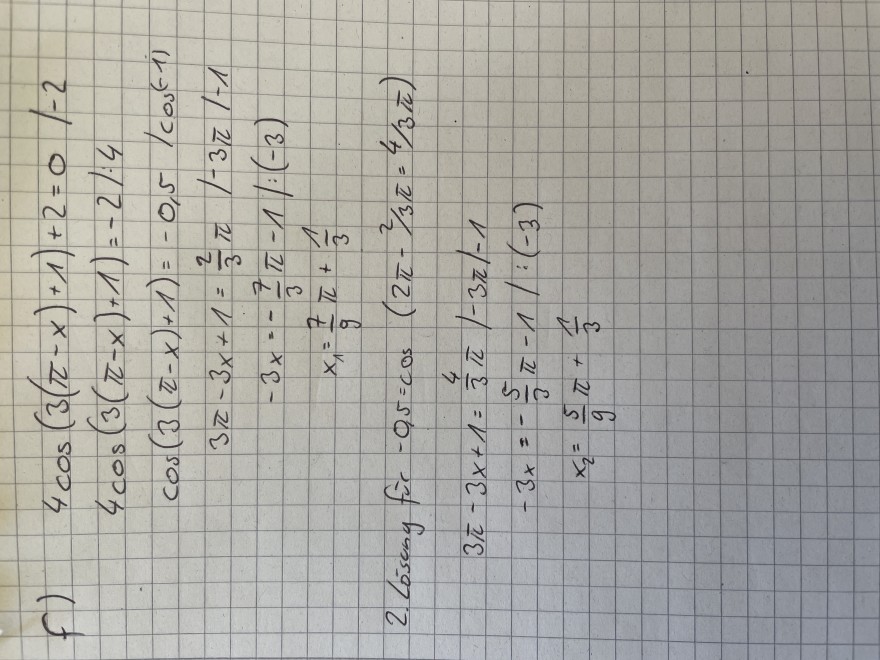 f) 4cos(3(π-x)+1)+2=0 /-2
4cos(3(π-x)+1)=-2/:4
cos(3(π-x)+1)=-0,5 /cos(-1)
3π-3x+1=2/3π /-3π/-1
-3x=-7/3π-1/:(-3)
x₁=7/9π+1/3
2. Lösung für -0,5=cos (2π-2/3π=4/3π)
3π-3x+1=4/3π /-3π/-1
-3x=-5/3π-1/:(-3)
x₂=5/9π+1/3